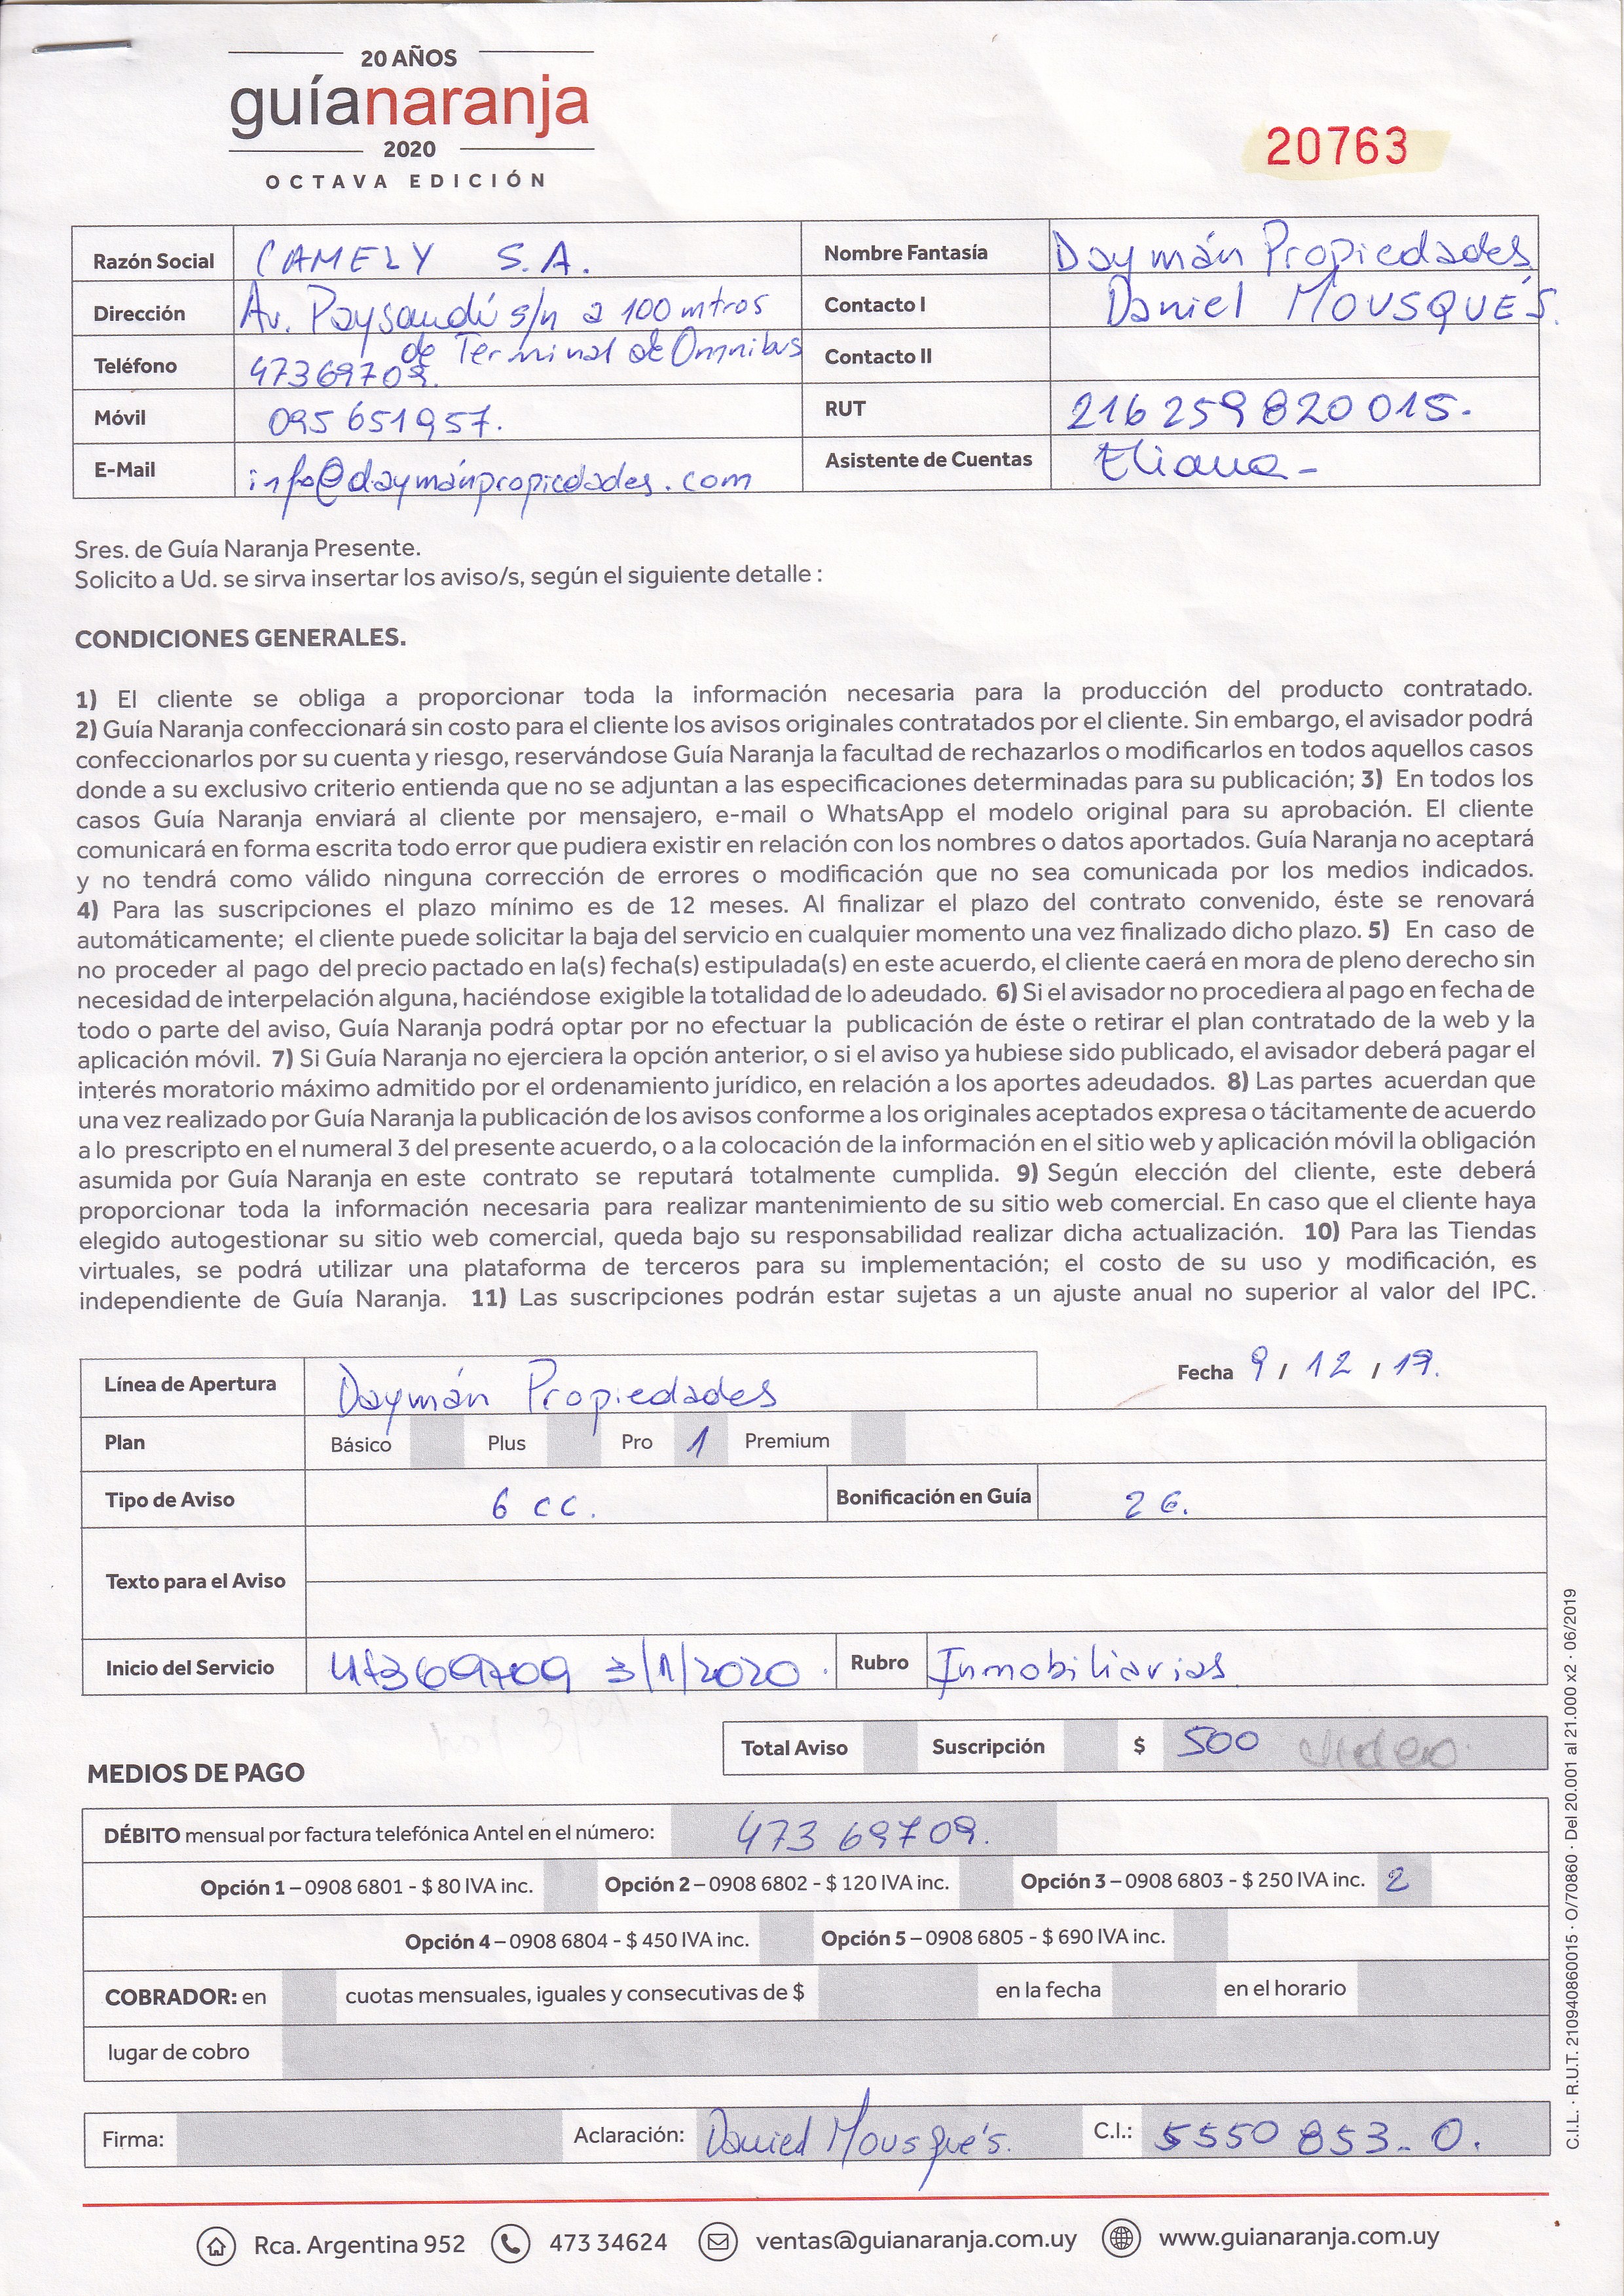 20 AÑOS
guíanaranja
2020
OCTAVA EDICIÓN
20763
Razón Social CAMELY S.A. Nombre Fantasía Daymán Propiedades
Dirección Av. Paysandú s/n a 100 mtros Contacto I Daniel MOUSQUÉS.
de Terminal de Omnibus
Teléfono 47369709. Contacto II
Móvil 095 651957. RUT 216259820015.
E-Mail info@daymánpropiedades.com Asistente de Cuentas Eliana -
Sres. de Guía Naranja Presente.
Solicito a Ud. se sirva insertar los aviso/s, según el siguiente detalle :
CONDICIONES GENERALES.
1) El cliente se obliga a proporcionar toda la información necesaria para la producción del producto contratado.
2) Guía Naranja confeccionará sin costo para el cliente los avisos originales contratados por el cliente. Sin embargo, el avisador podrá
confeccionarlos por su cuenta y riesgo, reservándose Guía Naranja la facultad de rechazarlos o modificarlos en todos aquellos casos
donde a su exclusivo criterio entienda que no se adjuntan a las especificaciones determinadas para su publicación; 3) En todos los
casos Guía Naranja enviará al cliente por mensajero, e-mail o WhatsApp el modelo original para su aprobación. El cliente
comunicará en forma escrita todo error que pudiera existir en relación con los nombres o datos aportados. Guía Naranja no aceptará
y no tendrá como válido ninguna corrección de errores o modificación que no sea comunicada por los medios indicados.
4) Para las suscripciones el plazo mínimo es de 12 meses. Al finalizar el plazo del contrato convenido, éste se renovará
automáticamente; el cliente puede solicitar la baja del servicio en cualquier momento una vez finalizado dicho plazo. 5) En caso de
no proceder al pago del precio pactado en la(s) fecha(s) estipulada(s) en este acuerdo, el cliente caerá en mora de pleno derecho sin
necesidad de interpelación alguna, haciéndose exigible la totalidad de lo adeudado. 6) Si el avisador no procediera al pago en fecha de
todo o parte del aviso, Guía Naranja podrá optar por no efectuar la publicación de éste o retirar el plan contratado de la web y la
aplicación móvil. 7) Si Guía Naranja no ejerciera la opción anterior, o si el aviso ya hubiese sido publicado, el avisador deberá pagar el
interés moratorio máximo admitido por el ordenamiento jurídico, en relación a los aportes adeudados. 8) Las partes acuerdan que
una vez realizado por Guía Naranja la publicación de los avisos conforme a los originales aceptados expresa o tácitamente de acuerdo
a lo prescripto en el numeral 3 del presente acuerdo, o a la colocación de la información en el sitio web y aplicación móvil la obligación
asumida por Guía Naranja en este contrato se reputará totalmente cumplida. 9) Según elección del cliente, este deberá
proporcionar toda la información necesaria para realizar mantenimiento de su sitio web comercial. En caso que el cliente haya
elegido autogestionar su sitio web comercial, queda bajo su responsabilidad realizar dicha actualización. 10) Para las Tiendas
virtuales, se podrá utilizar una plataforma de terceros para su implementación; el costo de su uso y modificación, es
independiente de Guía Naranja. 11) Las suscripciones podrán estar sujetas a un ajuste anual no superior al valor del IPC.
Línea de Apertura Daymán Propiedades Fecha 9 / 12 / 19.
Plan Básico Plus Pro 1 Premium
Tipo de Aviso 6 cc. Bonificación en Guía 26.
Texto para el Aviso
Inicio del Servicio 47369709 3/1/2020. Rubro Inmobiliarias
Total Aviso Suscripción $ 500
MEDIOS DE PAGO
DÉBITO mensual por factura telefónica Antel en el número: 473 69709.
Opción 1 – 0908 6801 - $ 80 IVA inc. Opción 2 – 0908 6802 - $ 120 IVA inc. Opción 3 – 0908 6803 - $ 250 IVA inc. 2
Opción 4 – 0908 6804 - $ 450 IVA inc. Opción 5 – 0908 6805 - $ 690 IVA inc.
COBRADOR: en cuotas mensuales, iguales y consecutivas de $ en la fecha en el horario
lugar de cobro
Firma: Aclaración: Daniel Mousqués. C.I.: 5550 853-0.
Rca. Argentina 952 473 34624 ventas@guianaranja.com.uy www.guianaranja.com.uy
C.I.L. · R.U.T. 210940860015 · O/70860 · Del 20.001 al 21.000 x2 · 06/2019